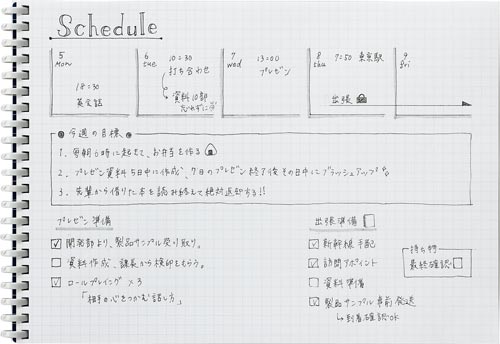 Schedule
5 Mon
18:30
英会話
6 tue
10:30
打ち合わせ
資料10部
忘れずに
7 wed
13:00
プレゼン
8 thu
7:50 東京駅
出張
9 Fri
今週の目標
1. 毎朝6時に起きて、お弁当を作る
2. プレゼン資料5日中に作成、7日のプレゼン終了後その日中にブラッシュアップ
3. 先輩から借りた本を読み終えて絶対返却する!!
プレゼン準備
開発部より、製品サンプル受り取り。
資料作成、課長から検印をもらう。
ロールプレイング ×3
「相手の心をつかむ話し方」
出張準備
新幹線手配
訪問アポイント
資料準備
製品サンプル事前発送
到着確認OK
持ち物
最終確認